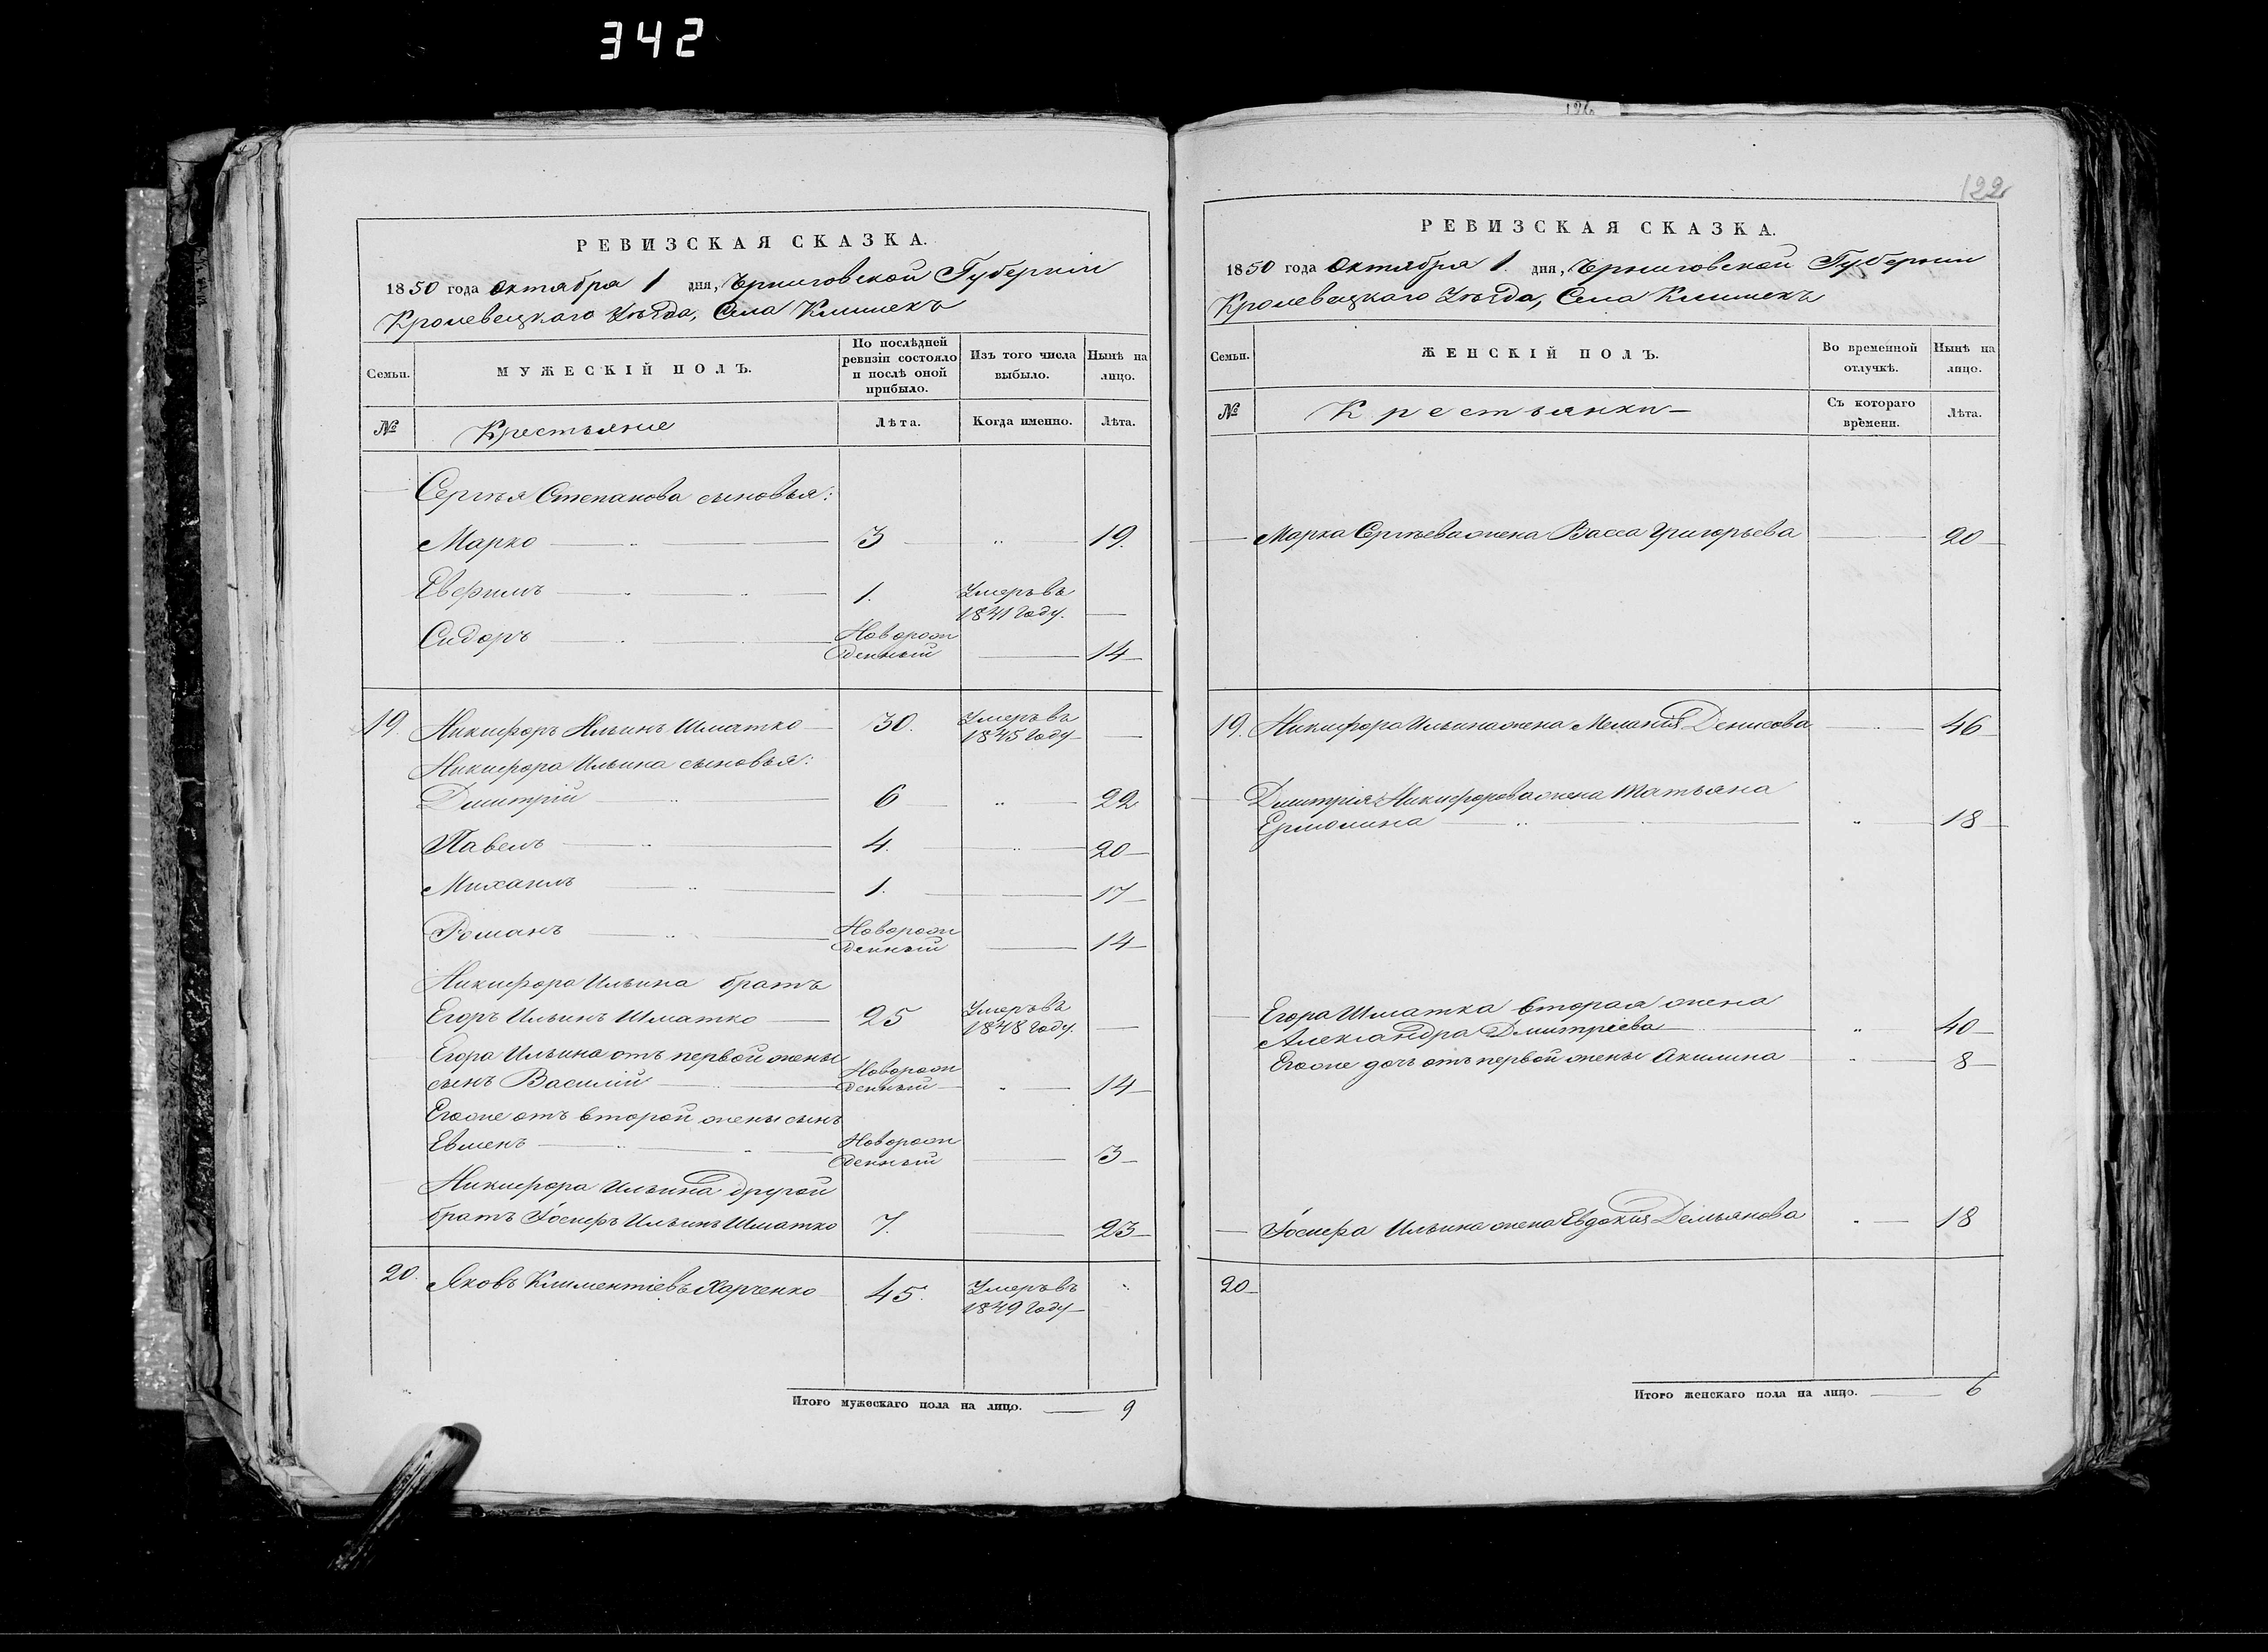 342
126
122
РЕВИЗСКАЯ СКАЗКА.
1850 года Октября 1 дня, Черниговской Губерніи
Кролевецкаго Уѣзда, Села Клишекъ
Семьи.
МУЖЕСКІЙ ПОЛЪ.
По послѣдней ревизіи состояло и послѣ оной прибыло.
Изъ того числа выбыло.
Нынѣ на лицо.
№
Крестьяне
Лѣта.
Когда именно.
Лѣта.
Сергѣя Степанова сыновья:
Марко 3 19.
Евфимъ 1. Умеръ въ
1841 году.
Сидоръ Новорож
денный 14
19. Никифоръ Ильинъ Шматко 30. Умеръ въ
1845 году
Никифора Ильина сыновья:
Дмитрій 6 22
Павелъ 4. 20
Михаилъ 1. 17
Романъ Новорож
денный 14
Никифора Ильина братъ
Егоръ Ильинъ Шматко 25 Умеръ въ
1848 году.
Егора Ильина отъ первой жены
сынъ Василій Новорож
денный 14
Егоже отъ второй жены сынъ
Евменъ Новорож
денный 3
Никифора Ильина другой
братъ Іосифъ Ильинъ Шматко 7. 23
20. Яковъ Климентіевъ Харченко 45. Умеръ въ
1849 году
Итого мужескаго пола на лицо. 9
РЕВИЗСКАЯ СКАЗКА.
1850 года Октября 1. дня, Черниговской Губерніи
Кролевецкаго Уѣзда, Села Клишекъ
Семьи.
ЖЕНСКІЙ ПОЛЪ.
Во временной отлучкѣ.
Нынѣ на лицо.
№
Крестьянки
Съ котораго времени.
Лѣта.
Марка Сергѣева жена Васса Григорьева 20
19. Никифора Ильина жена Меланія Денисова 46
Дмитрія Никифорова жена Татьяна
Ермолина 18
Егора Шматка вторая жена
Александра Дмитріева 40
Егоже дочь отъ первой жены Акилина 8
Іосифа Ильина жена Евдокія Демьянова 18
20
Итого женскаго пола на лицо. 6